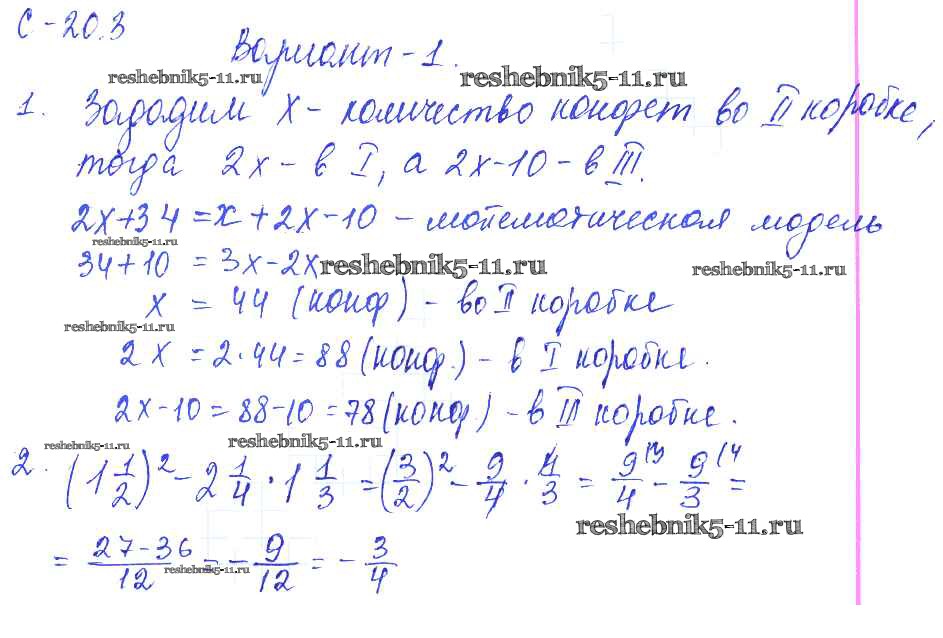 С-20.3
Вариант-1.
reshebnik5-11.ru reshebnik5-11.ru
1. Зададим x - количество конфет во II коробке,
тогда 2x - в I, а 2x-10 - в III.
2x+34 = x+2x-10 - математическая модель
reshebnik5-11.ru
34+10 = 3x-2x reshebnik5-11.ru reshebnik5-11.ru
x = 44 (конф) - во II коробке
reshebnik5-11.ru
2x = 2·44 = 88 (конф.) - в I коробке.
2x-10 = 88-10 = 78 (конф) - в III коробке.
reshebnik5-11.ru reshebnik5-11.ru
2. (1 1/2)² - 2 1/4 · 1 1/3 = (3/2)² - 9/4 · 4/3 = 9/4 (3 - 9/3 (4 =
reshebnik5-11.ru
= 27-36/12 = - 9/12 = - 3/4
reshebnik5-11.ru